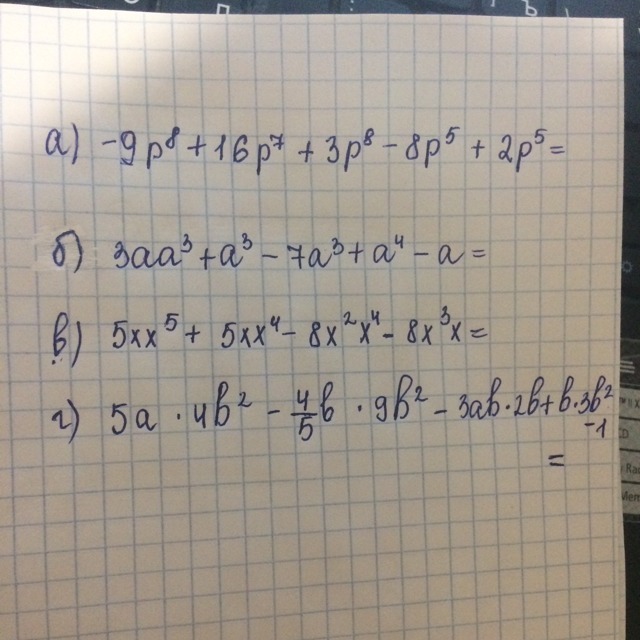 а) -9p⁸ + 16p⁷ + 3p⁸ - 8p⁵ + 2p⁵ =
б) 3aa³ + a³ - 7a³ + a⁴ - a =
в) 5xx⁵ + 5xx⁴ - 8x²x⁴ - 8x³x =
г) 5a · 4b² - 4/5 b · 9b² - 3ab · 2b + b · 3b²
-1
=